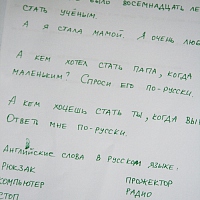 было восемнадцать ле
стать учёным.
А я стала мамой. А очень люб
А кем хотел стать папа, когда
маленьким? Спроси его по-русски.
А кем хочешь стать ты, когда вы
Ответь мне по-русски.
Английские слова в русском языке.
Рюкзак Прожектор
компьютер радио
стоп